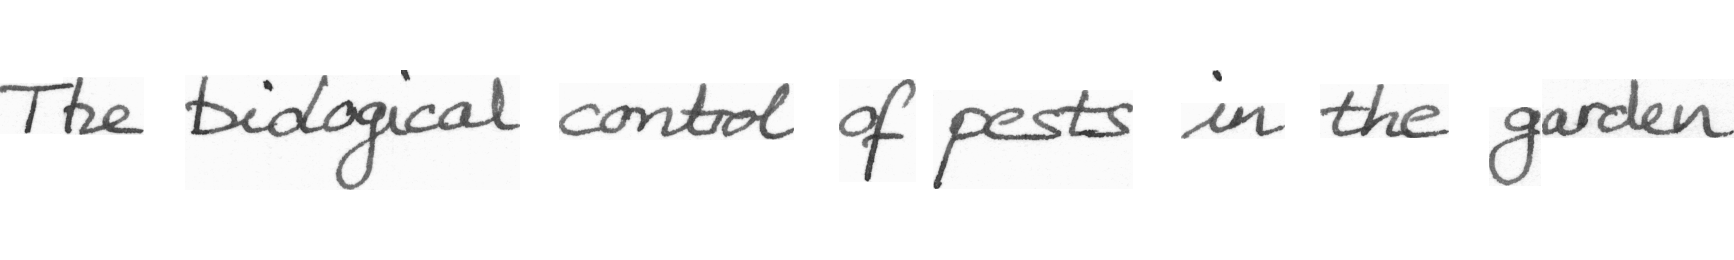 The biological control of pests in the garden